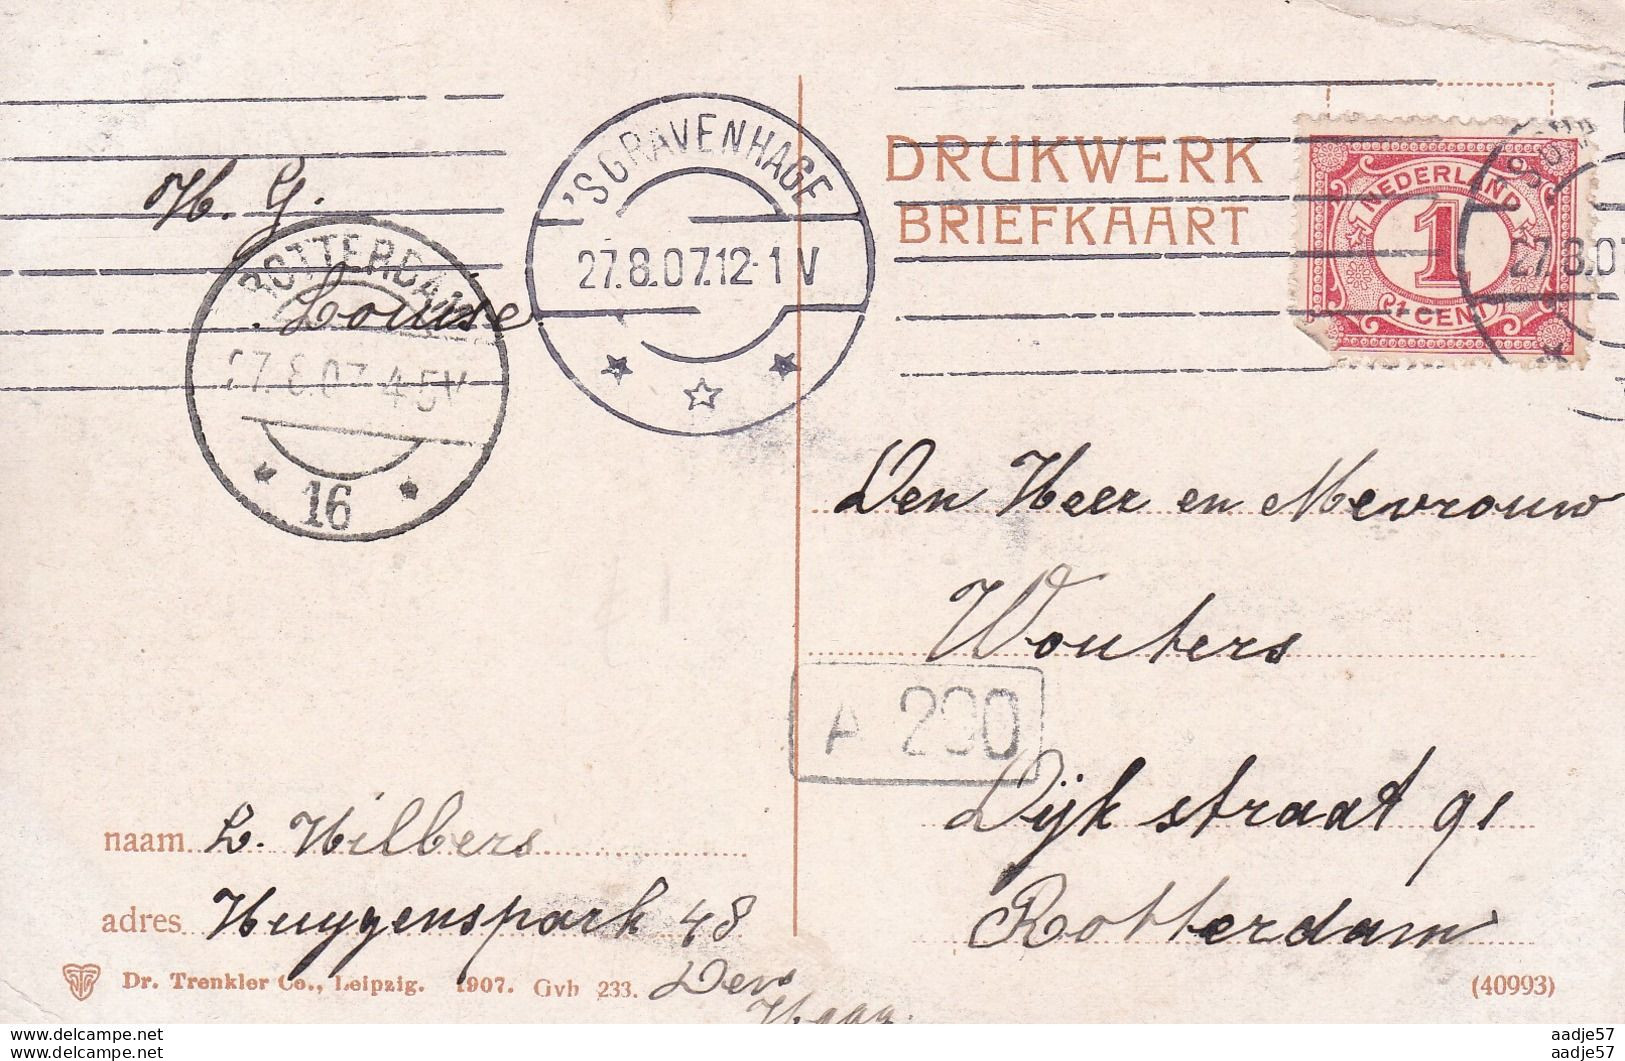 'SGRAVENHAGE
27.8.07.12-1 V
DRUKWERK
BRIEFKAART
NEDERLAND
1
CENT
27.8.07
H. G.
Louise
ROTTERDAM
27.8.07 4-5V
16
Den Heer en Mevrouw
Wouters
A 290
Dijkstraat 91
Rotterdam
naam L. Hilbers
adres Huygenspark 48
Den
Haag.
Dr. Trenkler Co., Leipzig. 1907. Gvh 233.
(40993)
www.delcampe.net
aadje57
www.delcampe.net
aadje57